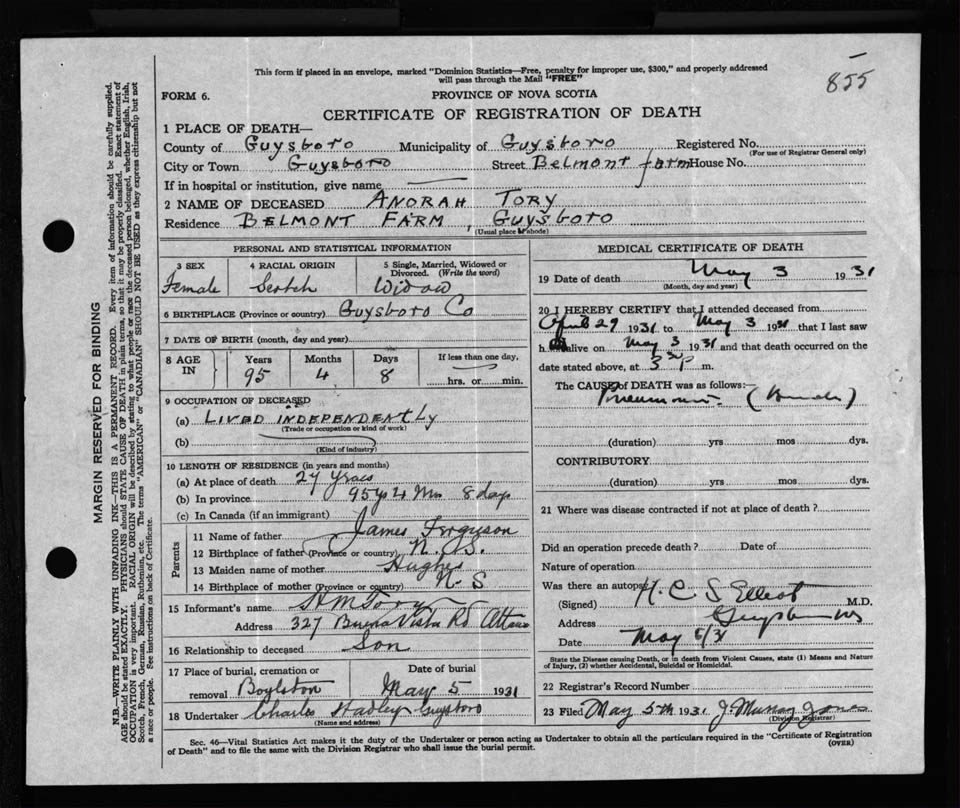 855
This form if placed in an envelope, marked "Dominion Statistics—Free, penalty for improper use, $300," and properly addressed
will pass through the Mail "FREE"
FORM 6. PROVINCE OF NOVA SCOTIA
CERTIFICATE OF REGISTRATION OF DEATH
1 PLACE OF DEATH—
County of Guysboro Municipality of Guysboro Registered No.
(For use of Registrar General only)
City or Town Guysboro Street Belmont farm House No.
If in hospital or institution, give name
2 NAME OF DECEASED ANORAH TORY
Residence BELMONT FARM, GUYSBORO
(Usual place of abode)
PERSONAL AND STATISTICAL INFORMATION
3 SEX
Female
4 RACIAL ORIGIN
Scotch
5 Single, Married, Widowed or
Divorced. (Write the word)
Widow
6 BIRTHPLACE (Province or country) Guysboro Co
7 DATE OF BIRTH (month, day and year)
8 AGE
IN
Years
95
Months
4
Days
8
If less than one day,
hrs. or min.
9 OCCUPATION OF DECEASED
(a) LIVED INDEPENDENTLY
(Trade or occupation or kind of work)
(b)
(Kind of industry)
10 LENGTH OF RESIDENCE (in years and months)
(a) At place of death 27 years
(b) In province 95 y 4 Mos 8 days
(c) In Canada (if an immigrant)
Parents
11 Name of father James Ferguson
12 Birthplace of father (Province or country) N. S.
13 Maiden name of mother Hughes
14 Birthplace of mother (Province or country) N. S
15 Informant's name Tory
Address 327 Buena Vista Rd Ottawa
16 Relationship to deceased Son
17 Place of burial, cremation or
removal Boylston
Date of burial
May 5 1931
18 Undertaker Charles Guysboro
(Name and address)
MEDICAL CERTIFICATE OF DEATH
19 Date of death May 3 1931
(Month, day and year)
20 I HEREBY CERTIFY that I attended deceased from
April 29 1931 to May 3 1931 that I last saw
h alive on May 3 1931 and that death occurred on the
date stated above, at 3 p. m.
The CAUSE of DEATH was as follows:—
Pneumonia
(duration) yrs mos dys.
CONTRIBUTORY
(duration) yrs mos dys.
21 Where was disease contracted if not at place of death?
Did an operation precede death? Date of
Nature of operation
Was there an autopsy
(Signed) H. C. S Elliot M.D.
Address Guysboro NS
Date May 5/31
State the Disease causing Death, or in death from Violent Causes, state (1) Means and Nature
of Injury, (2) whether Accidental, Suicidal or Homicidal.
22 Registrar's Record Number
23 Filed May 5th 1931 J. Murray Jones
(Division Registrar)
Sec. 46—Vital Statistics Act makes it the duty of the Undertaker or person acting as Undertaker to obtain all the particulars required in the "Certificate of Registration
of Death" and to file the same with the Division Registrar who shall issue the burial permit. (OVER)
MARGIN RESERVED FOR BINDING
N.B.—WRITE PLAINLY WITH UNFADING INK—THIS IS A PERMANENT RECORD. Every item of information should be carefully supplied.
AGE should be stated EXACTLY. PHYSICIANS should STATE CAUSE OF DEATH in plain terms, so that it may be properly classified. Exact statement of
OCCUPATION is very important. RACIAL ORIGIN will be described by stating to what people or race the deceased person belonged, whether English, Irish,
Scotch, French, German, Russian, Ruthenian, etc. The terms "AMERICAN" or "CANADIAN" SHOULD NOT BE USED as they express citizenship but not
a race or people. See instructions on back of Certificate.